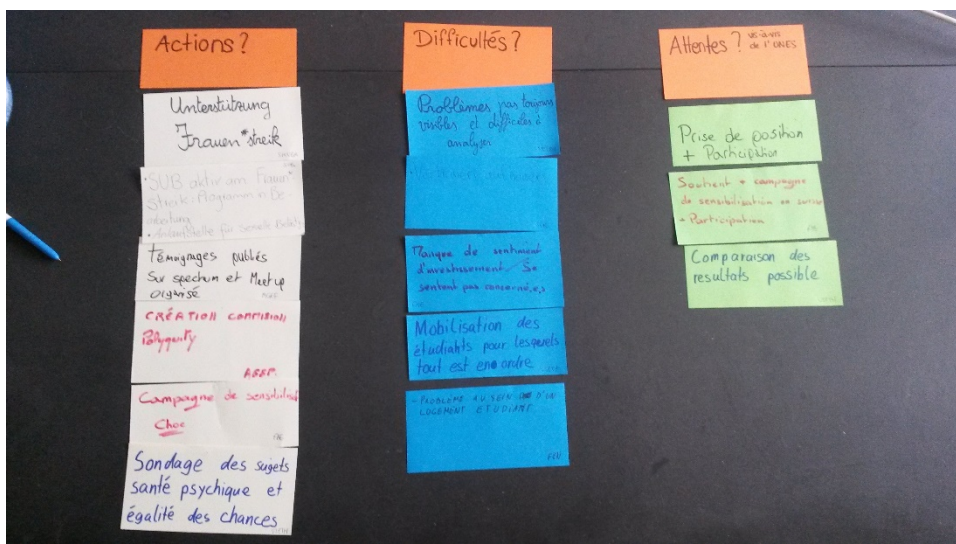 Actions ?
Unterstützung
Frauen*streik
SUB aktiv am Frauen*
Streik: Programm
Témoignages publiés
Sur spectrum et Meet up
organisé
CRÉATION COMMISION
Polyquity
AGEP.
Campagne de
Choc
Sondage des sujets
santé psychique et
égalité des chances
Difficultés ?
Problèmes pas toujours
visibles et difficiles à
analyser
Manque de sentiment
d'investissement / Se
sentent pas concerné.e.s
Mobilisation des
étudiants pour lesquels
tout est en ordre
- PROBLÈME AU SEIN D'UN
LOGEMENT ETUDIANT
Attentes ? vis-à-vis
de l'UNES
Prise de position
+ Participation
Soutient + campagne
de sensibilisation en suisse
+ Participation
Comparaison des
resultats possible